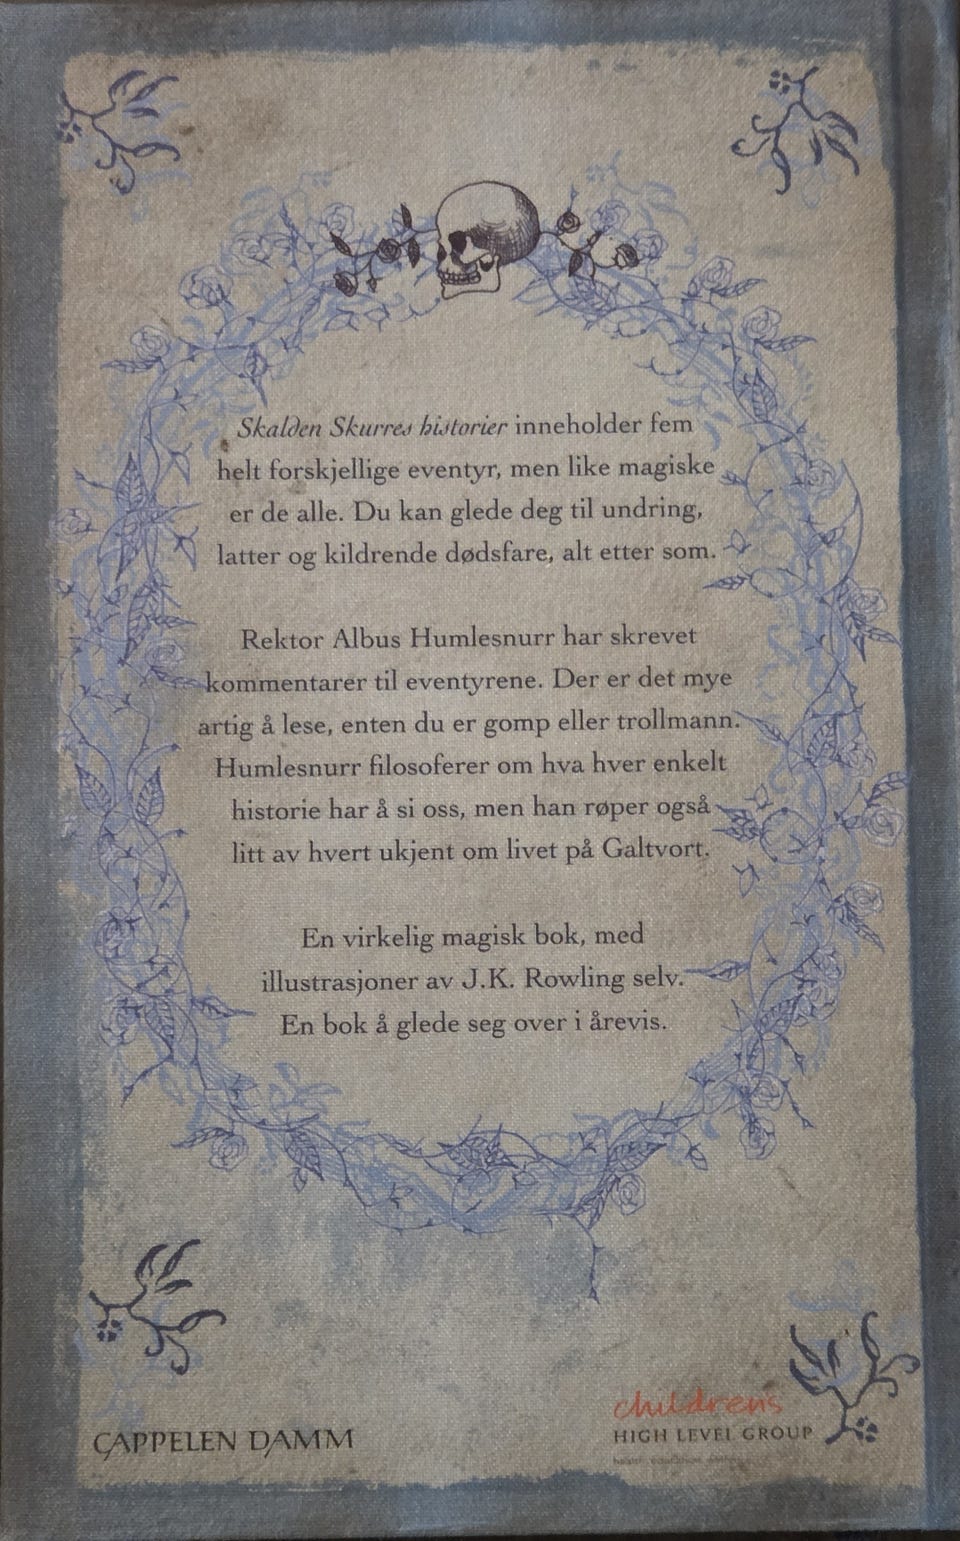 Skalden Skurres historier inneholder fem
helt forskjellige eventyr, men like magiske
er de alle. Du kan glede deg til undring,
latter og kildrende dødsfare, alt etter som.
Rektor Albus Humlesnurr har skrevet
kommentarer til eventyrene. Der er det mye
artig å lese, enten du er gomp eller trollmann.
Humlesnurr filosoferer om hva hver enkelt
historie har å si oss, men han røper også
litt av hvert ukjent om livet på Galtvort.
En virkelig magisk bok, med
illustrasjoner av J.K. Rowling selv.
En bok å glede seg over i årevis.
CAPPELEN DAMM
childrens
HIGH LEVEL GROUP